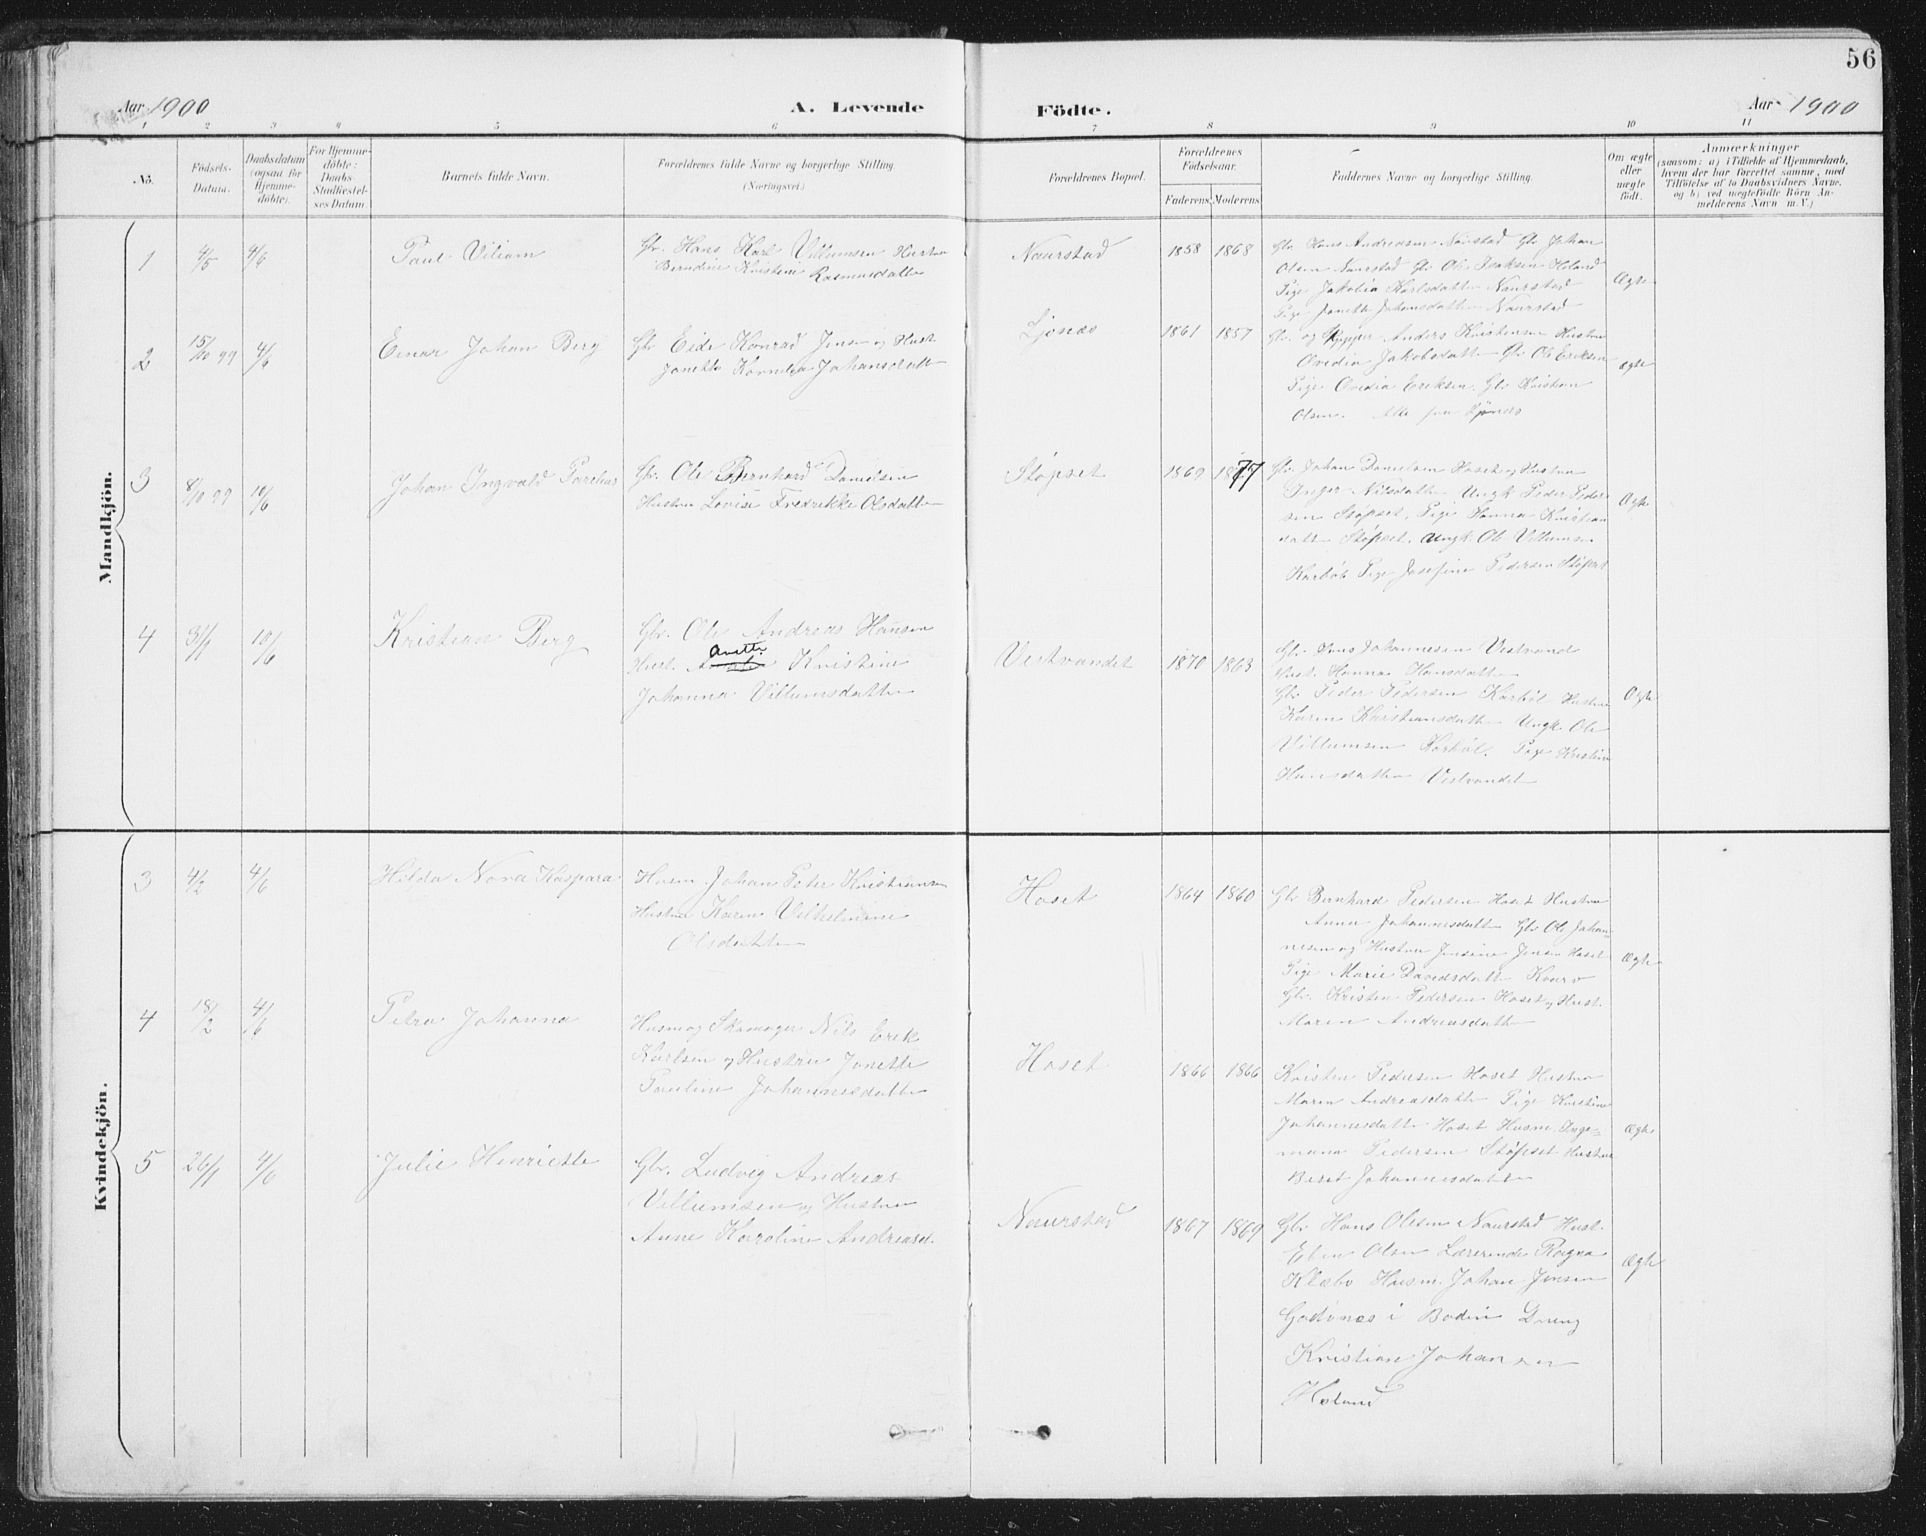 56
Aar 1900
A. Levende
Födte.
Aar 1900
1 2 3 4 5 6 7 8 9 10 11
No.
Födsels-
Datum.
Daabsdatum
(ogsaa for
Hjemme-
döbte).
For Hjemme-
döbte:
Daabs-
Stadfæstel-
ses Datum.
Barnets fulde Navn.
Forældrenes fulde Navne og borgerlige Stilling.
(Næringsvei.)
Forældrenes Bopæl.
Forældrenes
Födselsaar.
Faderens Moderens
Faddernes Navne og borgerlige Stilling.
Om ægte
eller
uægte
födt.
Anmærkninger
(saasom: a) i Tilfælde af Hjemmedaab,
hvem der har forrettet samme, med
Tilföielse af to Daabsvidners Navne,
og b) ved uægtefödte Börn An-
melderens Navn m.V.)
Mandkjön.
1 4/5 4/6 Paul Viliam
Gbr. Hans Karl Villumsen Hustru
Berndine Kristine
Rasmusdatte
Naurstad 1858 1868
Gbr Hans Andreasen Naurstad Gbr Johan
Olsen Naurstad Gbr Ole Isaksen Heland
Pige Jakobia Karlsdatte Naurstad
Pige Janette Johansdatte Naurstad
Ægte
2 15/10 99 4/6 Einar Johan Berg
Gbr Eide Konrad Jensen og Hust.
Janette Kornelia Johansdatte
Ljönæs 1861 1857
Gbr. og Anders Kristensen Hustru
Ovedia Jakobsdatte Gbr Ole Eriksen
Pige Ovedia Eriksen. Gbr Kristian
Olsen. Alle fra Ljönæs
Ægte
3 8/10 99 10/6 Johan Ingvald Parelius
Gbr. Ole Bernhard Danielsen
Hustru Lovise Fredrikke Olsdatte
Støpset 1869 1877
Gbr. Johan Danielsen Hoset og Hustru
Inger Nilsdatte Ungk Peder Peder-
sen Støpset. Pige Hanna Kristian
datte Støpset. Ungk. Ole Villumsen
Karbøl Pige Josefine Pedersen Støpset
Ægte
4 31/1 10/6 Kristian Berg
Gbr. Ole Andreas Hansen
Hust. Anette Kristine
Johanna Villumsdatte
Vestvandet 1870 1863
Gbr Jens Johannesen Vestvand
Hust. Hanna Hansdatte
Gbr Peder Pedersen Karbøl Hustru
Karen Kristiansdatte Ungk. Ole
Villumsen Karbøl. Pige Kristine
Hansdatte Vestvandet
Ægte
Kvindekjön.
3 4/2 4/6 Hilda Nora Kaspara
Husm. Johan Peter Kristiansen
Hustru Karen Vilhelmine
Olsdatte
Hoset 1864 1860
Gbr Bernhard Pedersen Hoset Hustru
Anna Johannesdatte Gbr Ole Johan-
nesen og Hustru Jensine Jensen Hoset
Pige Marie Davidsdatte Kvarv
Gbr. Kristen Pedersen Hoset og Hust.
Maren Andreasdatte
Ægte
4 18/2 4/6 Petra Johanna
Husm og Skomager Nils Erik
Karlsen og Hustru Janette
Pauline Johannesdatte
Hoset 1866 1866
Kristen Pedersen Hoset Hustru
Maren Andreasdatte Pige Kirstine
Johannesdatte Hoset Husm. Inge-
mann Pedersen Støpset Hustru
Beret Johannesdatte
Ægte
5 26/1 4/6 Julie Henriette
Gbr. Ludvig Andreas
Villumsen og Hustru
Anne Karoline Andreasd.
Naurstad 1867 1869
Gbr Hans Olsen Naurstad Hust.
Olsen Lærerinde Ragna
Klæbo Husm. Johan Jensen
Godønes i Bodin Dreng
Kristian Johansen
Heland
Ægte